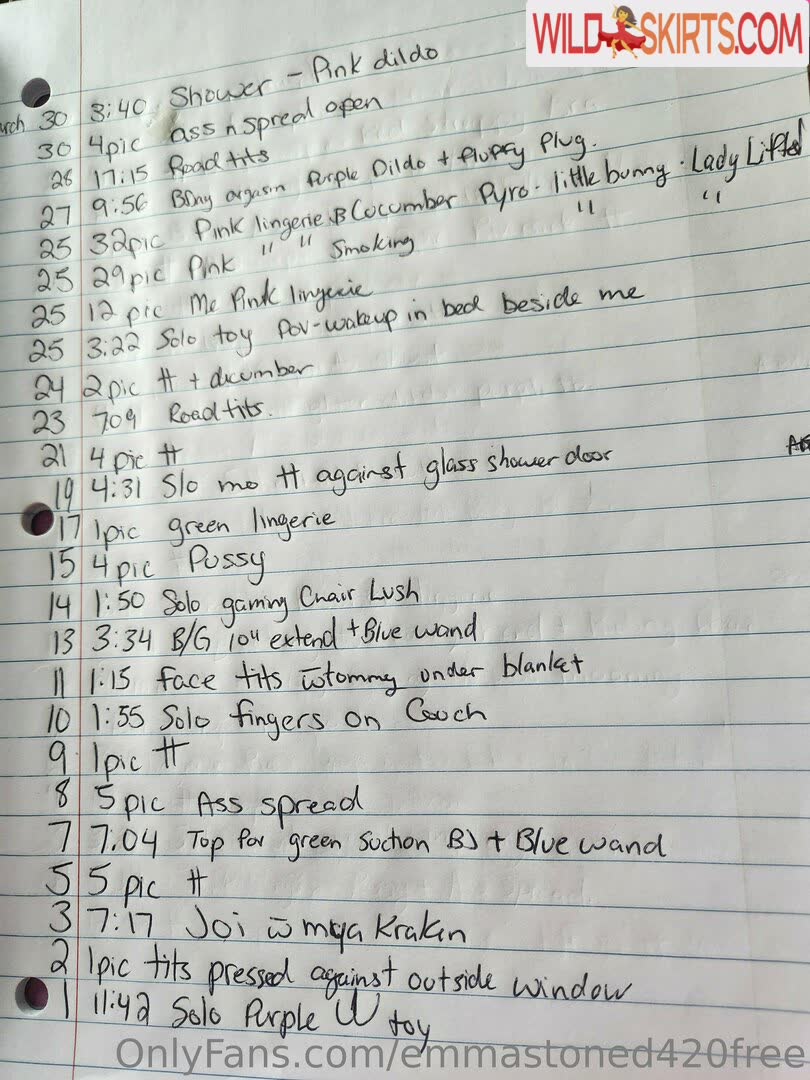 WILD SKIRTS.COM
arch 30 3:40 Shower - Pink dildo
30 4pic ass n spread open
28 17:15 Road tits
27 9:56 orgasm Purple Dildo + fluffy Plug.
25 32pic Pink lingerie Cocumber Pyro · little bunny · Lady Lifted
25 29pic Pink " " Smoking " "
25 12 pic Me Pink lingerie
25 3:22 Solo toy POV-wakeup in bed beside me
24 2pic tt +
23 709 Road tits.
21 4 pic tt
19 4:31 Slo mo tt against glass shower door
17 1pic green lingerie
15 4 pic Pussy
14 1:50 Solo gaming Chair Lush
13 3:34 B/G 10" extend + Blue wand
11 1:15 face tits w tommy under blanket
10 1:55 Solo fingers on Couch
9 1pic tt
8 5 pic Ass spread
7 7:04 Top for green Suction BJ + Blue wand
5 5 pic tt
3 7:17 Joi w mya Kraken
2 1pic tits pressed against outside window
1 11:42 Solo Purple W toy
OnlyFans.com/emmastoned420free